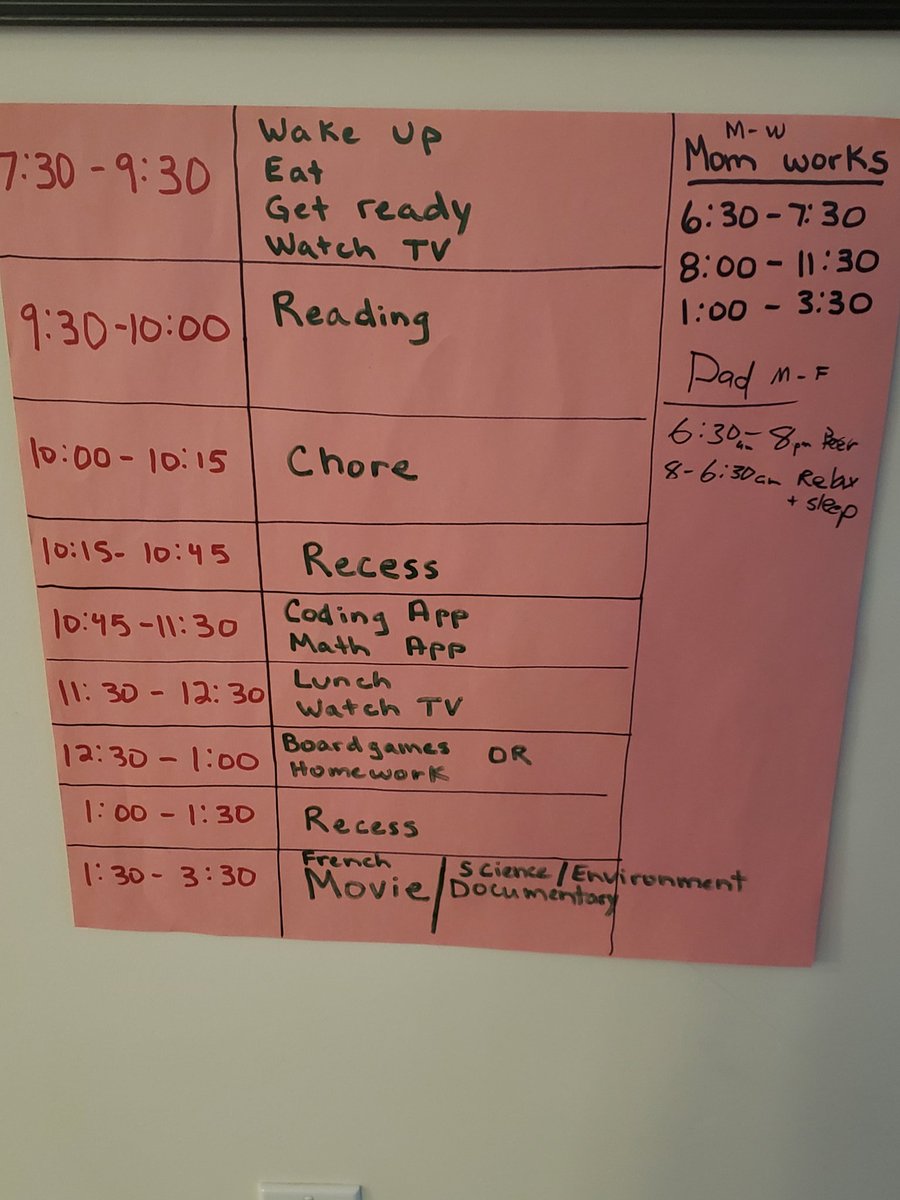 7:30 - 9:30
Wake up
Eat
Get ready
Watch TV
9:30-10:00
Reading
10:00 - 10:15
Chore
10:15- 10:45
Recess
10:45 -11:30
Coding App
Math App
11:30 - 12:30
Lunch
Watch TV
12:30 - 1:00
Boardgames OR
Homework
1:00 - 1:30
Recess
1:30- 3:30
French
Movie / Science/Environment
Documentary
M-W
Mom works
6:30-7:30
8:00 - 11:30
1:00 - 3:30
Dad M-F
6:30am- 8pm Beer
8-6:30am Relax
+ sleep